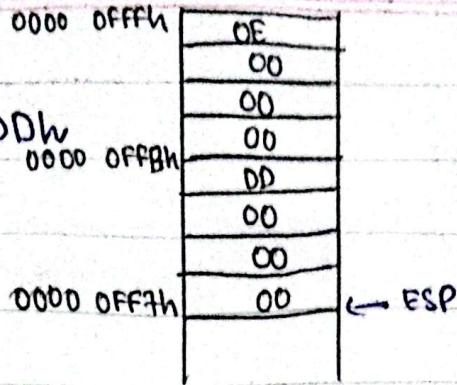 0000 0FFFh 0E
00
00
00
0000 0FFBh
DD
00
00
0000 0FF7h 00 ← ESP